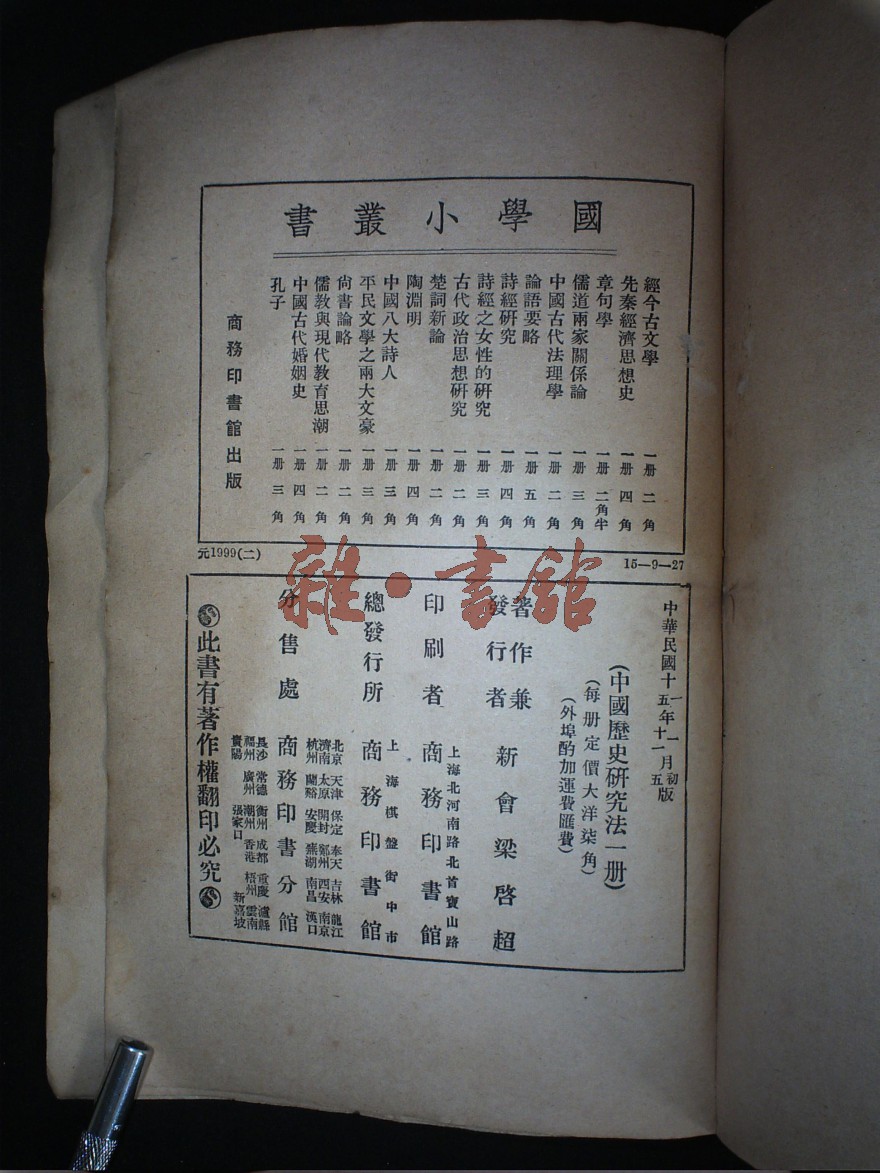 國學小叢書
經今古文學 一册 二角
先秦經濟思想史 一册 四角
章句學 一册 二角半
儒道兩家關係論 一册 三角
中國古代法理學 一册 二角
論語要略 一册 五角
詩經研究 一册 四角
詩經之女性的研究 一册 三角
古代政治思想研究 一册 二角
楚詞新論 一册 二角
陶淵明 一册 四角
中國八大詩人 一册 三角
平民文學之兩大文豪 一册 三角
尙書論略 一册 二角
儒教與現代教育思潮 一册 二角
中國古代婚姻史 一册 四角
孔子 一册 三角
商務印書館出版
元1999(二)
15—9—27
雜·書館
中華民國十一年一月初版
五年十一月五版
(中國歷史研究法一册)
(每册定價大洋柒角)
(外埠酌加運費匯費)
著作兼發行者 新會梁啓超
印刷者 上海北河南路北首寶山路 商務印書館
總發行所 上海棋盤街中市 商務印書館
分售處 商務印書分館
北京 天津 保定 奉天 吉林 龍江
濟南 太原 開封 鄭州 西安 南京
杭州 蘭谿 安慶 蕪湖 南昌 漢口
長沙 常德 衡州 成都 重慶 瀘縣
福州 廣州 潮州 香港 梧州 雲南
貴陽 張家口 新嘉坡
此書有著作權翻印必究